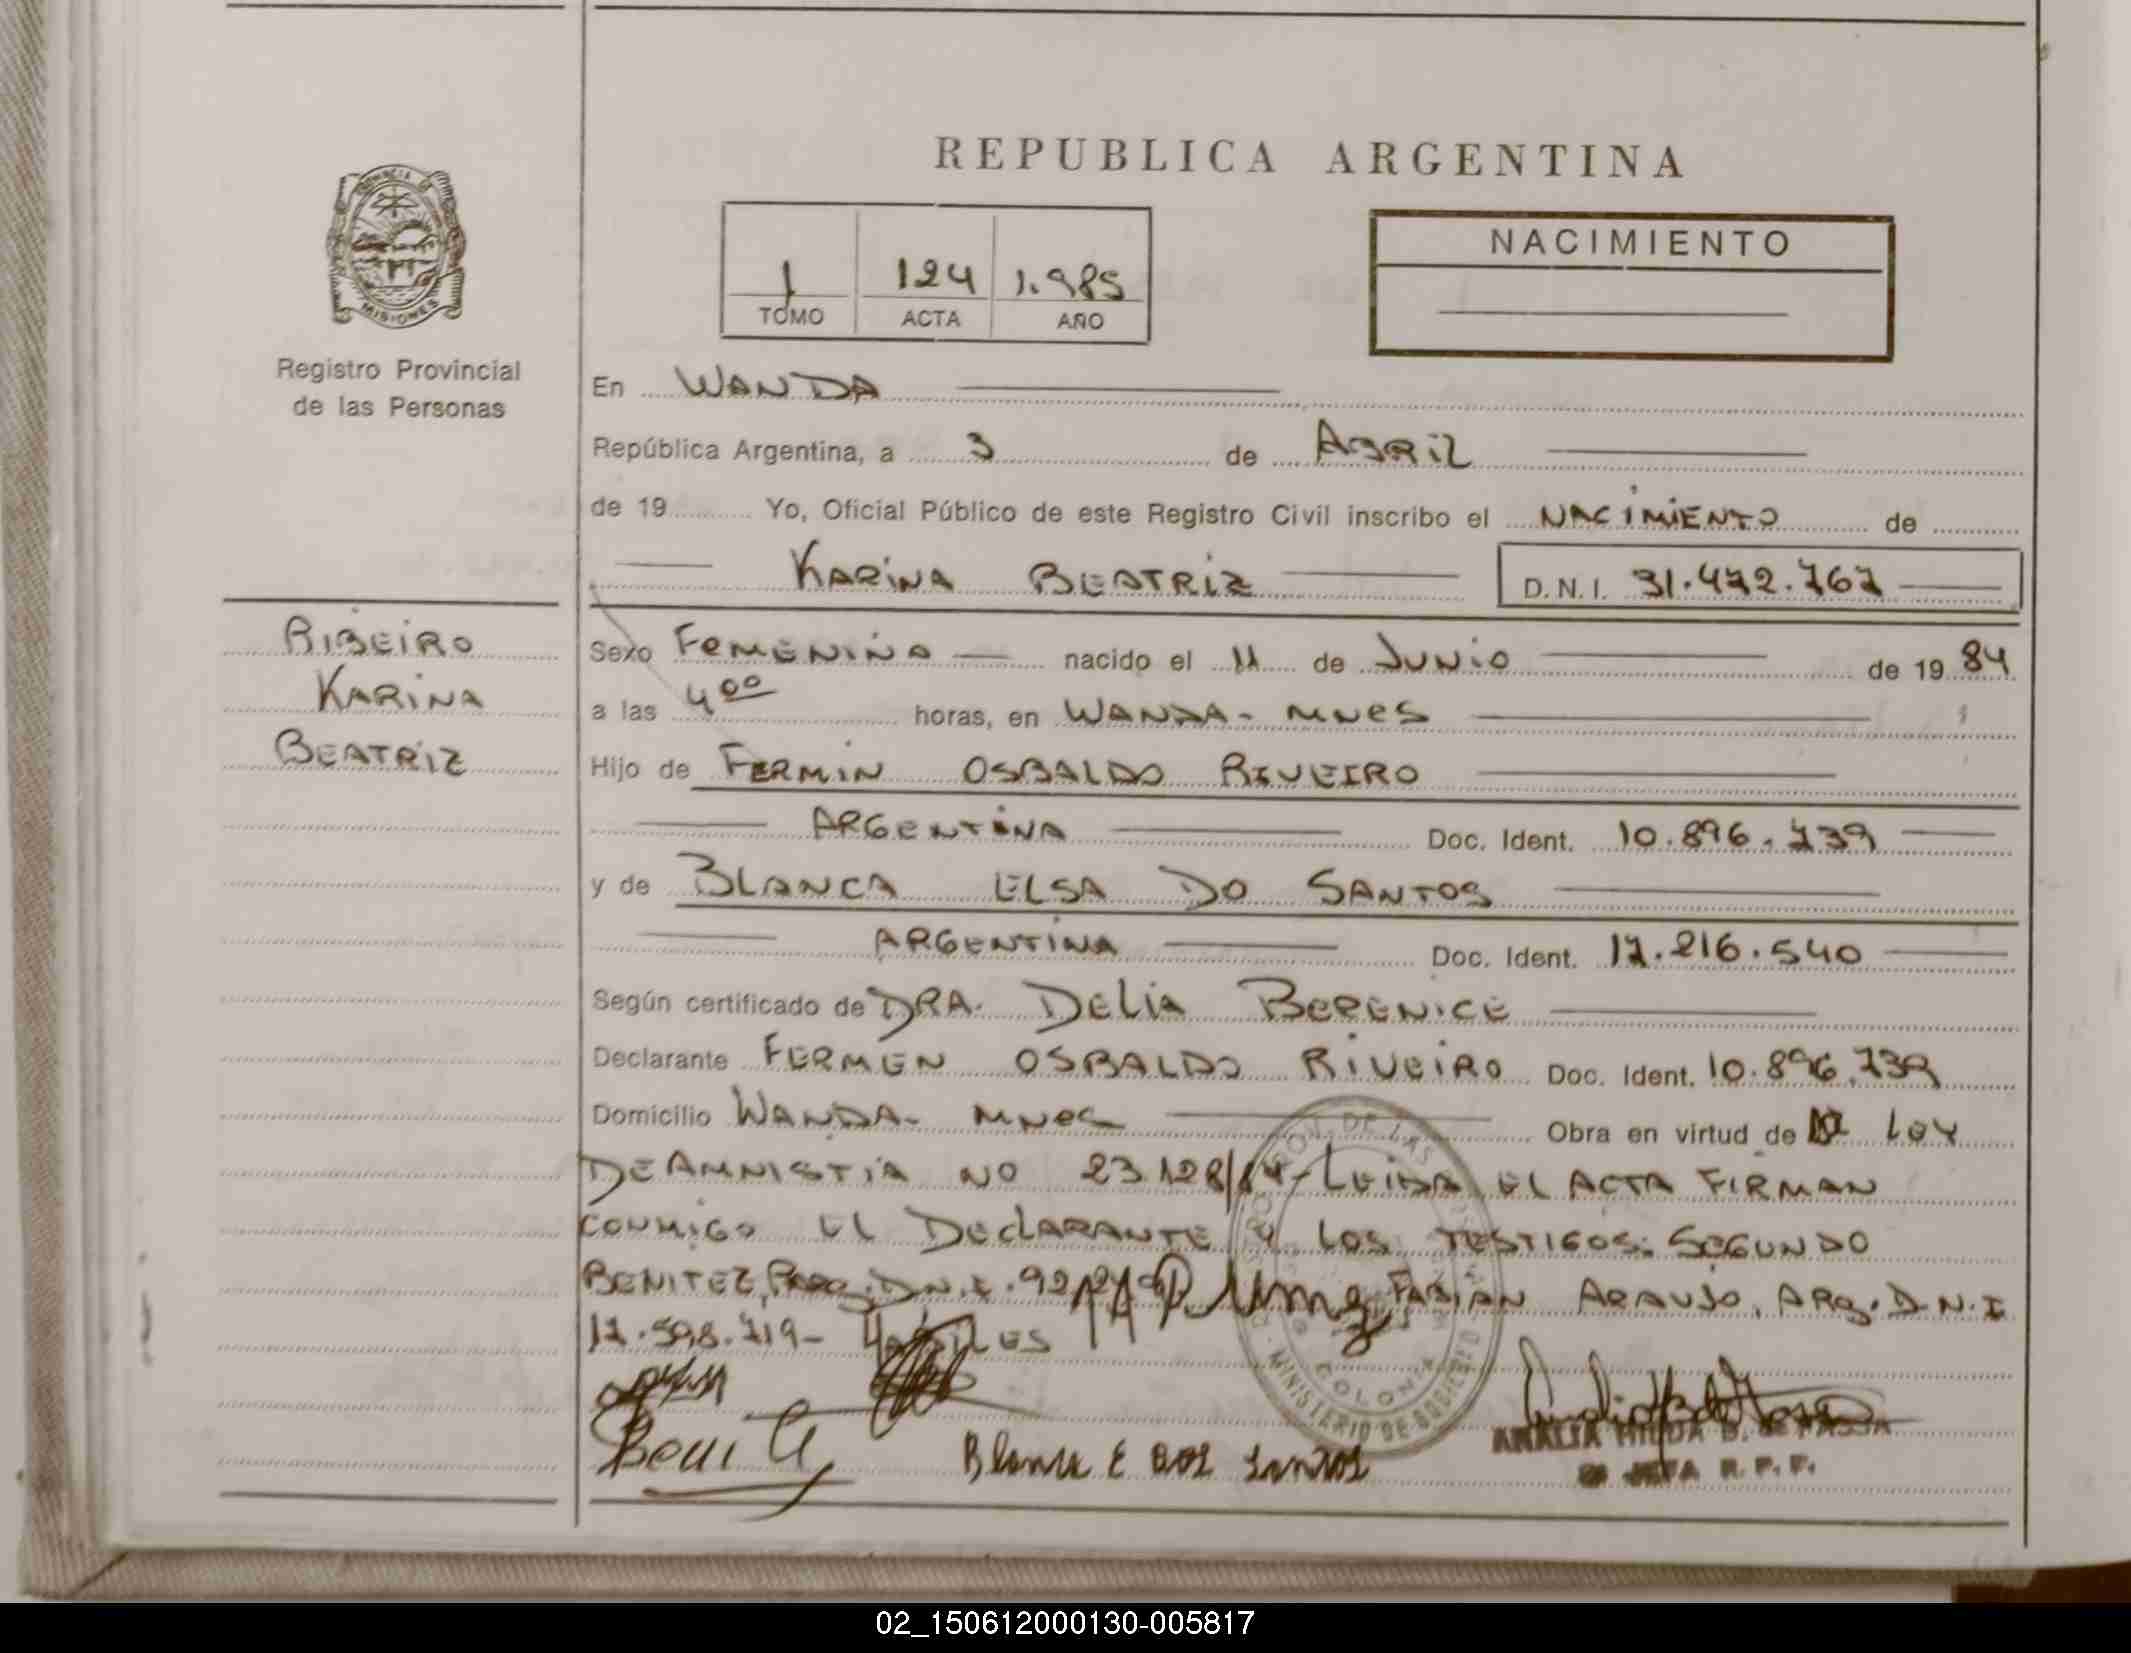 REPUBLICA ARGENTINA
PROVINCIA DE
MISIONES
Registro Provincial
de las Personas
1 124 1.985
TOMO ACTA AÑO
NACIMIENTO
RIBEIRO
KARINA
BEATRIZ
En WANDA
República Argentina, a 3 de ABRIL
de 19 Yo, Oficial Público de este Registro Civil inscribo el NACIMIENTO de
KARINA BEATRIZ D.N.I. 31.472.767
Sexo FEMENINO nacido el 11 de JUNIO de 19 84
a las 4 00 horas, en WANDA - MNES
Hijo de FERMIN OSBALDO RIVEIRO
ARGENTINA Doc. Ident. 10.896.739
y de BLANCA ELSA DO SANTOS
ARGENTINA Doc. Ident. 17.216.540
Según certificado de DRA. DELIA BERENICE
Declarante FERMEN OSBALDO RIVEIRO Doc. Ident. 10.896.739
Domicilio WANDA - MNES Obra en virtud de LEY
DE AMNISTIA NO 23.128/84 - LEIDA EL ACTA FIRMAN
CONMIGO EL DECLARANTE Y LOS TESTIGOS: SEGUNDO
BENITEZ, PARG. D.N.I. FABIAN ARAUJO, ARG. D.N.I
17.598.719 - HABILES
Blanca E DOS SANTOS
ANALIA HILDA B. DE
JEFA R. P. P.
PROV. DE LAS
COLONIA
MINISTERIO DE GOBIERNO
02_150612000130-005817